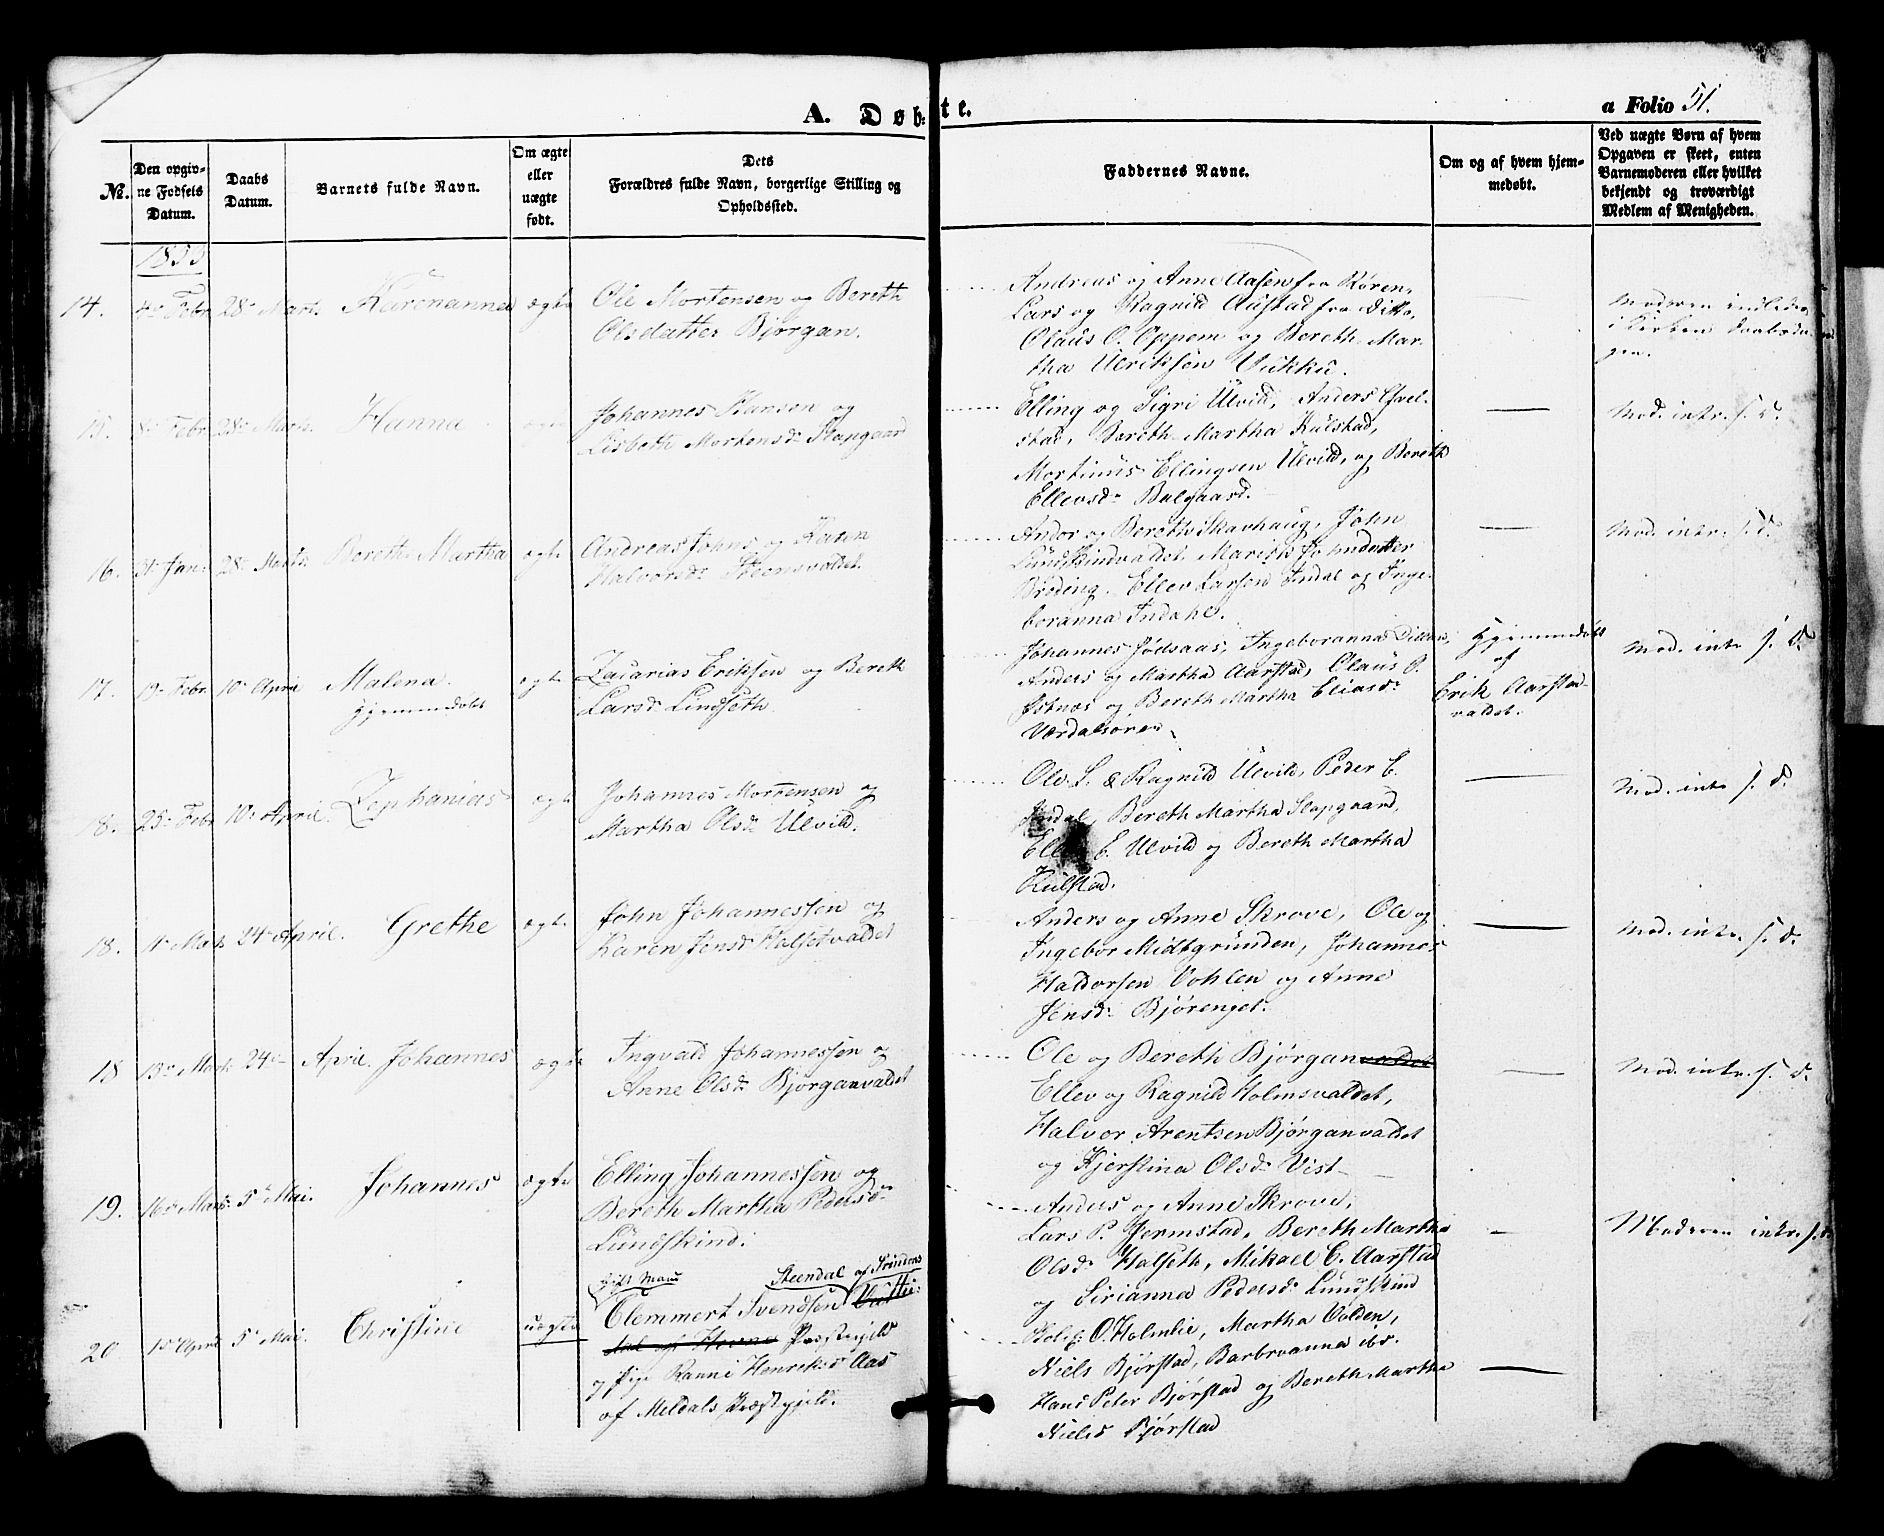 A. Døbte.
a Folio 51.
№.
Den opgivne Fødsels Datum.
Daabs Datum.
Barnets fulde Navn.
Om ægte eller uægte født.
Dets Forældres fulde Navn, borgerlige Stilling og Opholdssted.
Faddernes Navne.
Om og af hvem hjemmedøbt.
Ved uægte Børn af hvem Opgaven er skeet, enten Barnemoderen eller hvilket bekjendt og troværdigt Medlem af Menigheden.
1853
14. 4de Febr 28de Mart. Karenanna ægte
Ole Mortensen og Bereth
Olsdatter Bjørgan.
Andreas og Anne Aasen fra Røren,
Lars og Ragnild Austad fra Ditto,
Olaus O. Oppem og Bereth Mar-
tha Ulriksen Vukku.
Moderen indledes
i Kirken Daabsda-
gen.
15. 8de Febr 28de Marts. Hanna ægte
Johannes Hansen og
Lisbeth Mortensd. Slapgaard
Elling og Sigri Ulvild, Anders
stad, Bereth Martha Kulstad,
Mortinus Ellingsen Ulvild, og Bereth
Ellevsd. Balgaard.
Mod. intr. s. D.
16. 31. Jan. 28de Marts. Bereth Martha ægte
Andreas Johns. og Karen
Halvorsd. Steensvaldet.
Andor og Bereth Skavhaug, John
Lundskindvaldet. Marith Johnsdatter
Brøding. Ellev Larsen Indal og Inge-
boranna Indahl.
Mod. intr. s. D.
17. 19. Febr 10de April Malena. ægte
Hjemmedøbt
Zacarias Eriksen og Bereth
Larsd. Lindseth.
Johannes Jødsaas, Ingeboranna
Anders og Martha Aarstad, Olaus P.
og Bereth Martha Eliasd.
Værdalsøren.
Hjemmedøbt
af
Erik Aarstad-
valdet.
Mod. intr. s. D.
18. 25. Febr 10. April. Zephanias ægte
Johannes Mortensen og
Martha Olsd. Ulvild.
Ole S. & Ragnild Ulvild, Peder E.
Indal, Bereth Martha Slapgaard,
E. Ulvild og Bereth Martha
Kulstad.
Mod. intr. s. D.
18. 11. Marts 24de April. Grethe ægte
John Johannessen og
Karen Jensd. Halsetvaldet
Anders og Anne Skrove, Ole og
Ingebor Midtgrunden, Johannes
Haldorsen Vohlen og Anne
Jensd. Bjørenget.
Mod. intr. s. D.
18 13de Marts 24de April. Johannes ægte
Ingvald Johannessen og
Anne Olsd. Bjørganvaldet
Ole og Bereth Bjørganvaldet
Ellev og Ragnild Holmsvaldet,
Halvor Arentsen Bjørganvaldet
og Kjerstina Olsd. Vist
Mod. intr. s. D.
19. 16de Marts 5te Mai. Johannes ægte
Elling Johannessen og
Bereth Martha Pedersd.
Lundskind.
Anders og Anne Skrove,
Lars P. Jermstad, Bereth Martha
Olsd. Halseth, Mikael E. Aarstad
og Sirianna Pedersd. Lundskind
Moderen intr. s. D.
20 1ste April 5te Mai. Christine uægte
Gift Mand Steendal af Srindens
Clemmert Svendsen
Præstegjeld
og Pige Ranni Henriksd. Aas
af Meldals Præstegjeld.
O. Holmlie, Martha Volden,
Niels Bjørstad, Barbroanna ibd.
Hans Peter Bjørstad og Bereth Martha
Nielsd. Bjørstad